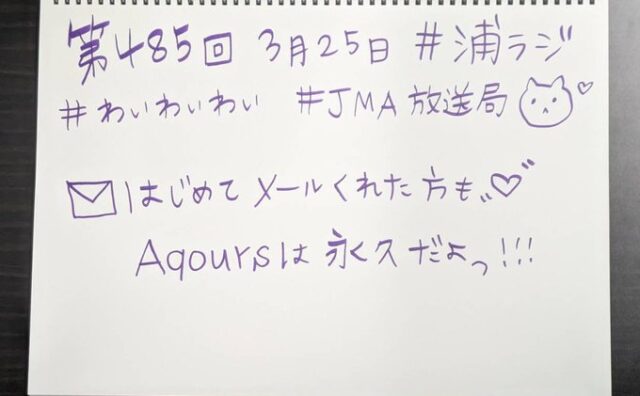 第485回 3月25日 #浦ラジ
#わぃわぃわぃ #JMA放送局
はじめてメールくれた方も、、♡"
Aqoursは永久だよっ!!!